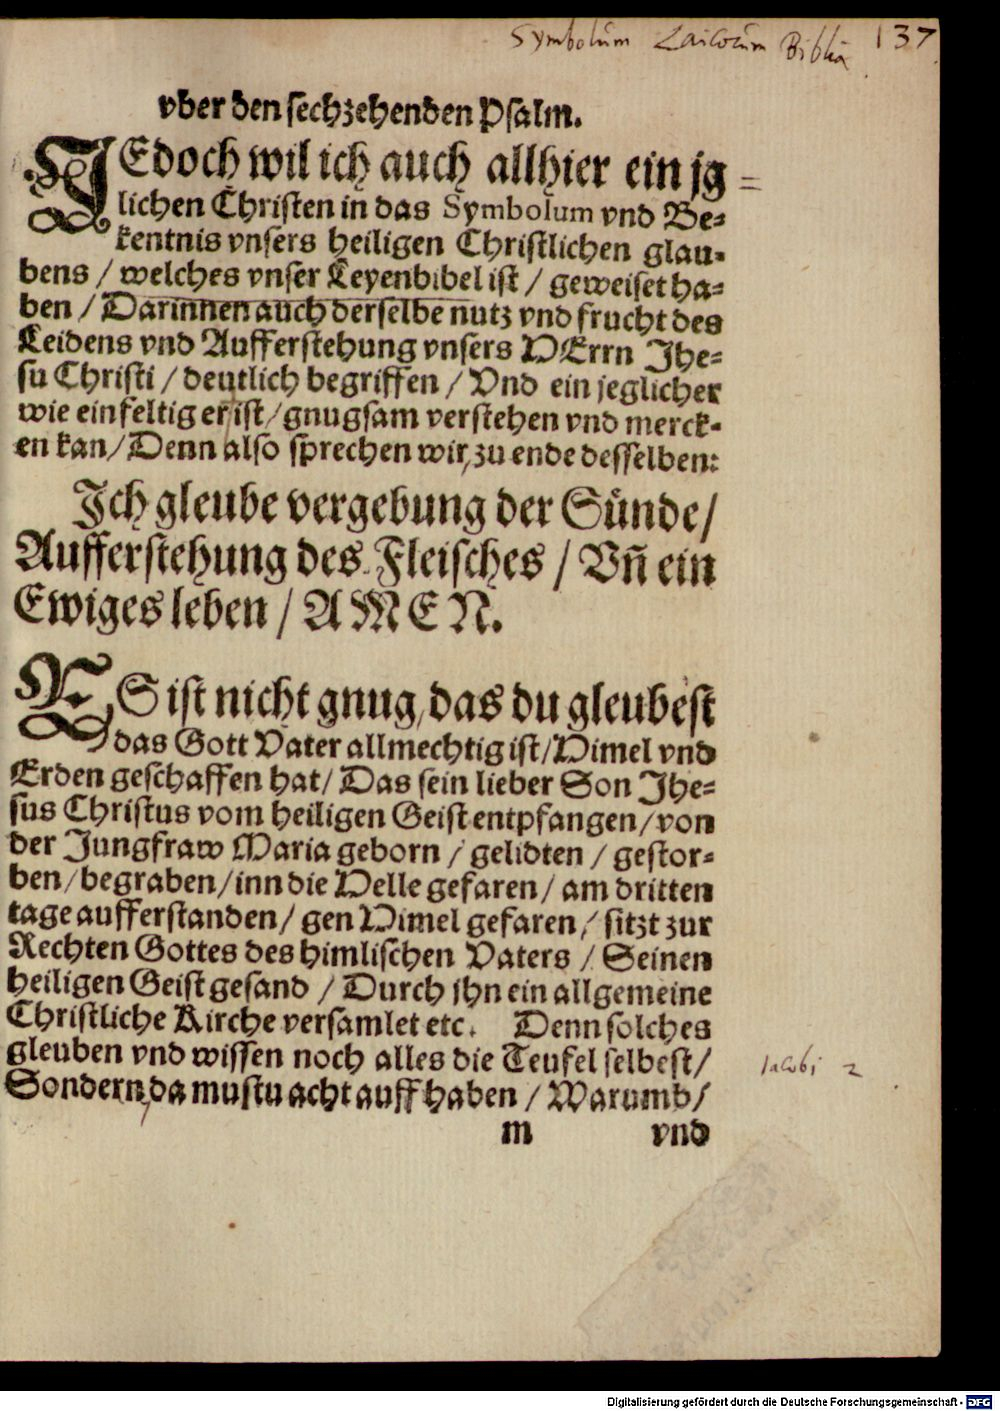 Symbolum Laicorum Biblia 137
vber den sechzehenden Psalm.
JEdoch wil ich auch allhier ein jg=
lichen Christen in das Symbolum vnd Be=
kentnis vnsers heiligen Christlichen glau=
bens / welches vnser Leyenbibel ist / geweiset ha=
ben / Darinnen auch derselbe nutz vnd frucht des
Leidens vnd Aufferstehung vnsers HErrn Jhe=
su Christi / deutlich begriffen / Vnd ein jeglicher
wie einfeltig er ist / gnugsam verstehen vnd merck=
en kan / Denn also sprechen wir, zu ende desselben:
Jch gleube vergebung der Sünde /
Aufferstehung des Fleisches / Vn̄ ein
Ewiges leben / AMEN.
ES ist nicht gnug, das du gleubest
das Gott Vater allmechtig ist / Himel vnd
Erden geschaffen hat / Das sein lieber Son Jhe=
sus Christus vom heiligen Geist entpfangen / von
der Jungfraw Maria geborn / gelidten / gestor=
ben / begraben / inn die Helle gefaren / am dritten
tage aufferstanden / gen Himel gefaren / sitzt zur
Rechten Gottes des himlischen Vaters / Seinen
heiligen Geist gesand / Durch jhn ein allgemeine
Christliche Kirche versamlet etc. Denn solches
gleuben vnd wissen noch alles die Teufel selbest /
Iacobi 2
Sondern, da mustu acht auff haben / Warumb /
m vnd
Digitalisierung gefördert durch die Deutsche Forschungsgemeinschaft - DFG